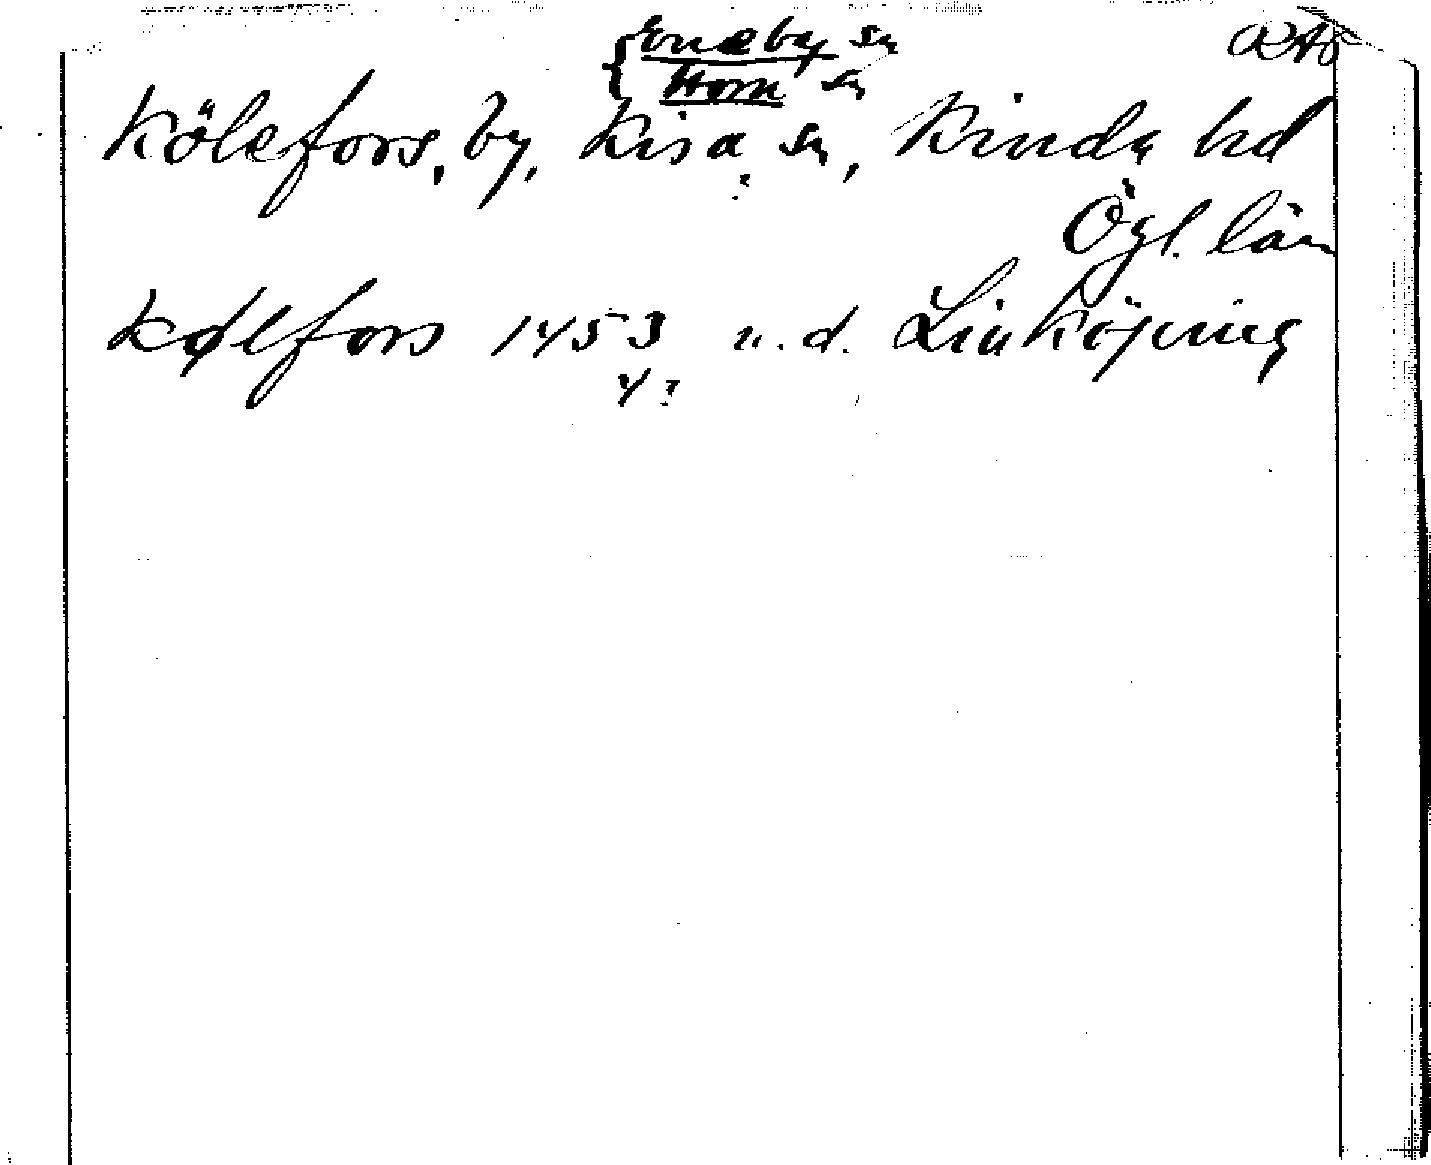 {Eneby sn RAp
Horn sn
Kölefors, by, Kisa sn, Kinda hd
:
Ögl. län
Kølfors 1453 u.d. Linköping
4/3